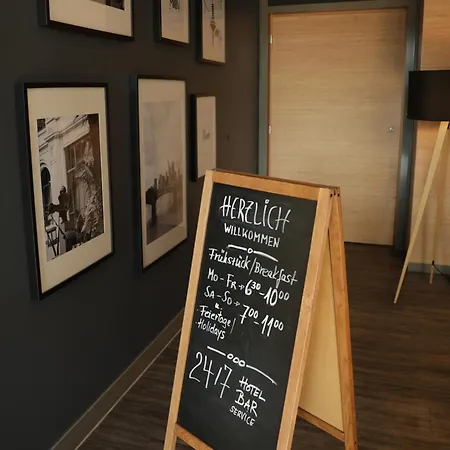 HERZLICH
WILLKOMMEN
Frühstück/breakfast
Mo - Fr → 6³⁰-10⁰⁰
Sa - So → 7⁰⁰-11⁰⁰
u.
Feiertage/
Holidays
24/7 HOTEL
BAR
SERVICE